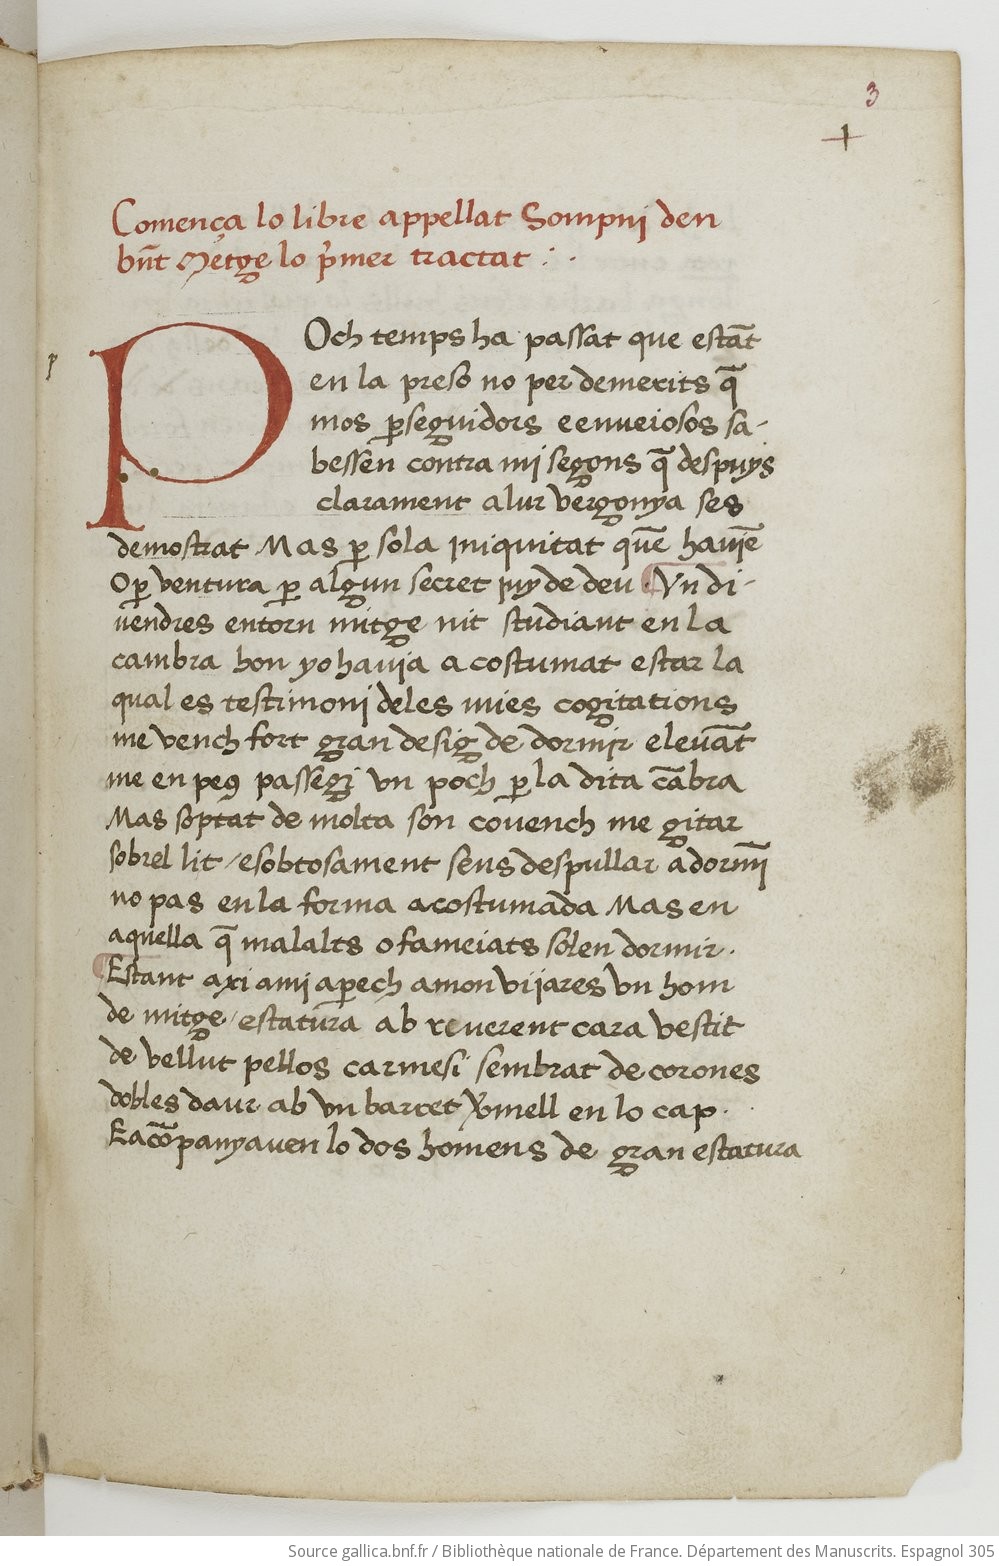 3
Comença lo libre appellat Sompni den
bn̄t Metge lo pˀmer tractat : ·
p
POch temps ha passat que estāt
en la preso no per demerits q̄
mos ꝑseguidors e enueiosos sa-
bessen contra mi segons q̄ despuys
clarament a lur vergonya ses
demostrat Mas ꝑ sola iniquitat quē hauiē
O ꝑ ventura ꝑ algun secret iuy de deu · Vn di-
uendres entorn mitge nit studiant en la
cambra hon yo hauia acostumat estar la
qual es testimoni de les mies cogitations
me vench fort gran desig de dormir e leuāt
me en peus passegi vn poch ꝑ la dita cābra
Mas soptat de molta son couench me gitar
sobrel lit / e sobtosament sens despullar adormi
no pas en la forma acostumada Mas en
aquella q̄ malalts o fameiats solen dormir ·
Estant axi a mi aꝑech a mon vijares vn hom
de mitge / estatura ab reuerent cara vestit
de vellut pellos carmesi sembrat de corones
dobles daur ab vn barret v̉mell en lo cap ·
E acōpanyauen lo dos homens de gran estatura
Source gallica.bnf.fr / Bibliothèque nationale de France. Département des Manuscrits. Espagnol 305